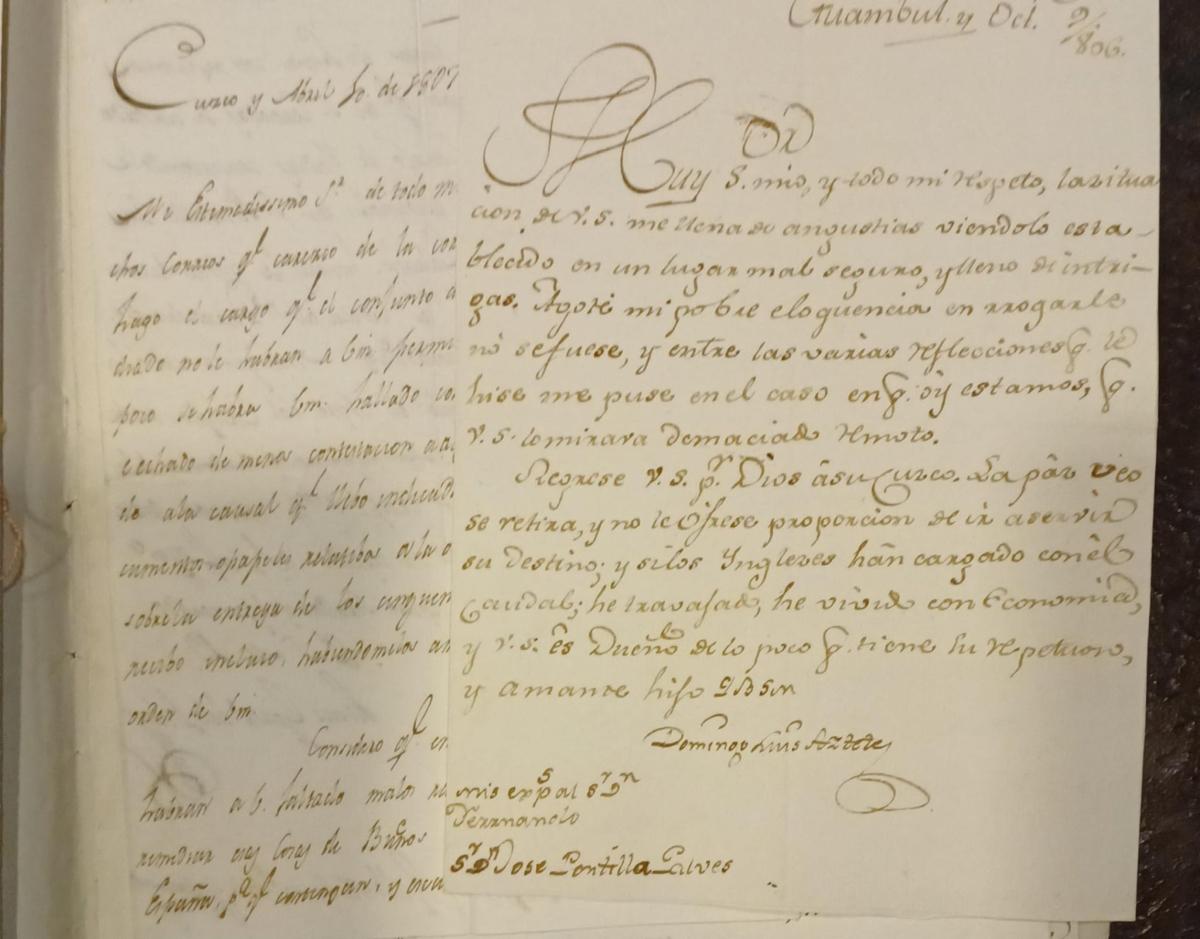 Curco y Abril 10. de 1807
Mi Estimadissimo Sr. de todo m
chos Correos ql. carerco de la con
hago el cargo ql. el conjunto d
diado no le habran a bm. permi
poco se habra bm. hallado co
echado de menos contestacion a
de a la causal ql. llebo indicad
cumentos, o papeles relatibos a la o
sobre la entrega de los
recibo incluso, habiendomelos
orden de bm.
Considero ql. en
habran a b. faltado malos ra
remedien esas Cosas de Bs. Aos
España, pa. ql. contengan, y escu
Guambul. y Oct. 9/806.
Or
Muy S. mio, y todo mi respeto, la situa
cion de V.S. me llena de angustias viendolo esta-
blecido en un lugar mal seguro, y lleno de intri-
gas. Agoté mi pobre eloquencia en rrogarle
no se fuese, y entre las varias reflecciones q. le
hise me puse en el caso en q. oy estamos, q.
V.S. lo mirara demaciado remoto.
Regrese V.S. pr. Dios á su Curco. La pas veo
se retira, y no le ofrese proporcion de ir a servir
su destino; y si los Yngleses hán cargado con él
Caudal; he travajado, he vivido con Economia,
y V.S. és Dueño de lo poco q. tiene su respetuoso,
y amante hijo QBSM
Domingo Luis Aztete
mis exps. al Sr. Dn.
Fernando
Sr. Dn. Jose Pontilla Galves